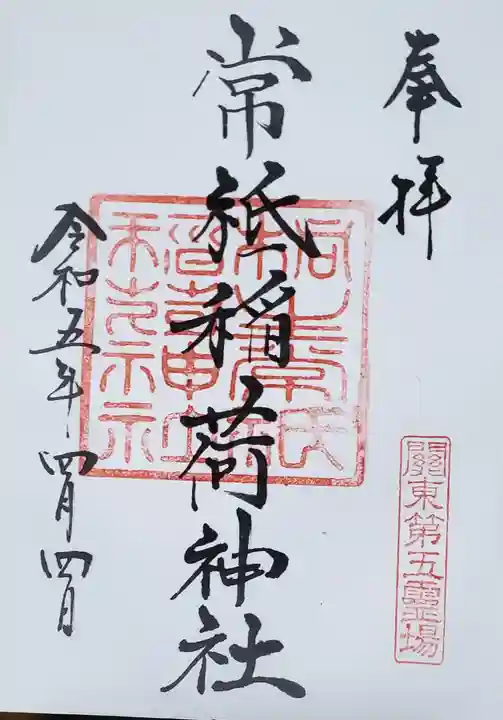 奉拝
關東第五靈場
常祇稲荷神社
令和五年四月四日